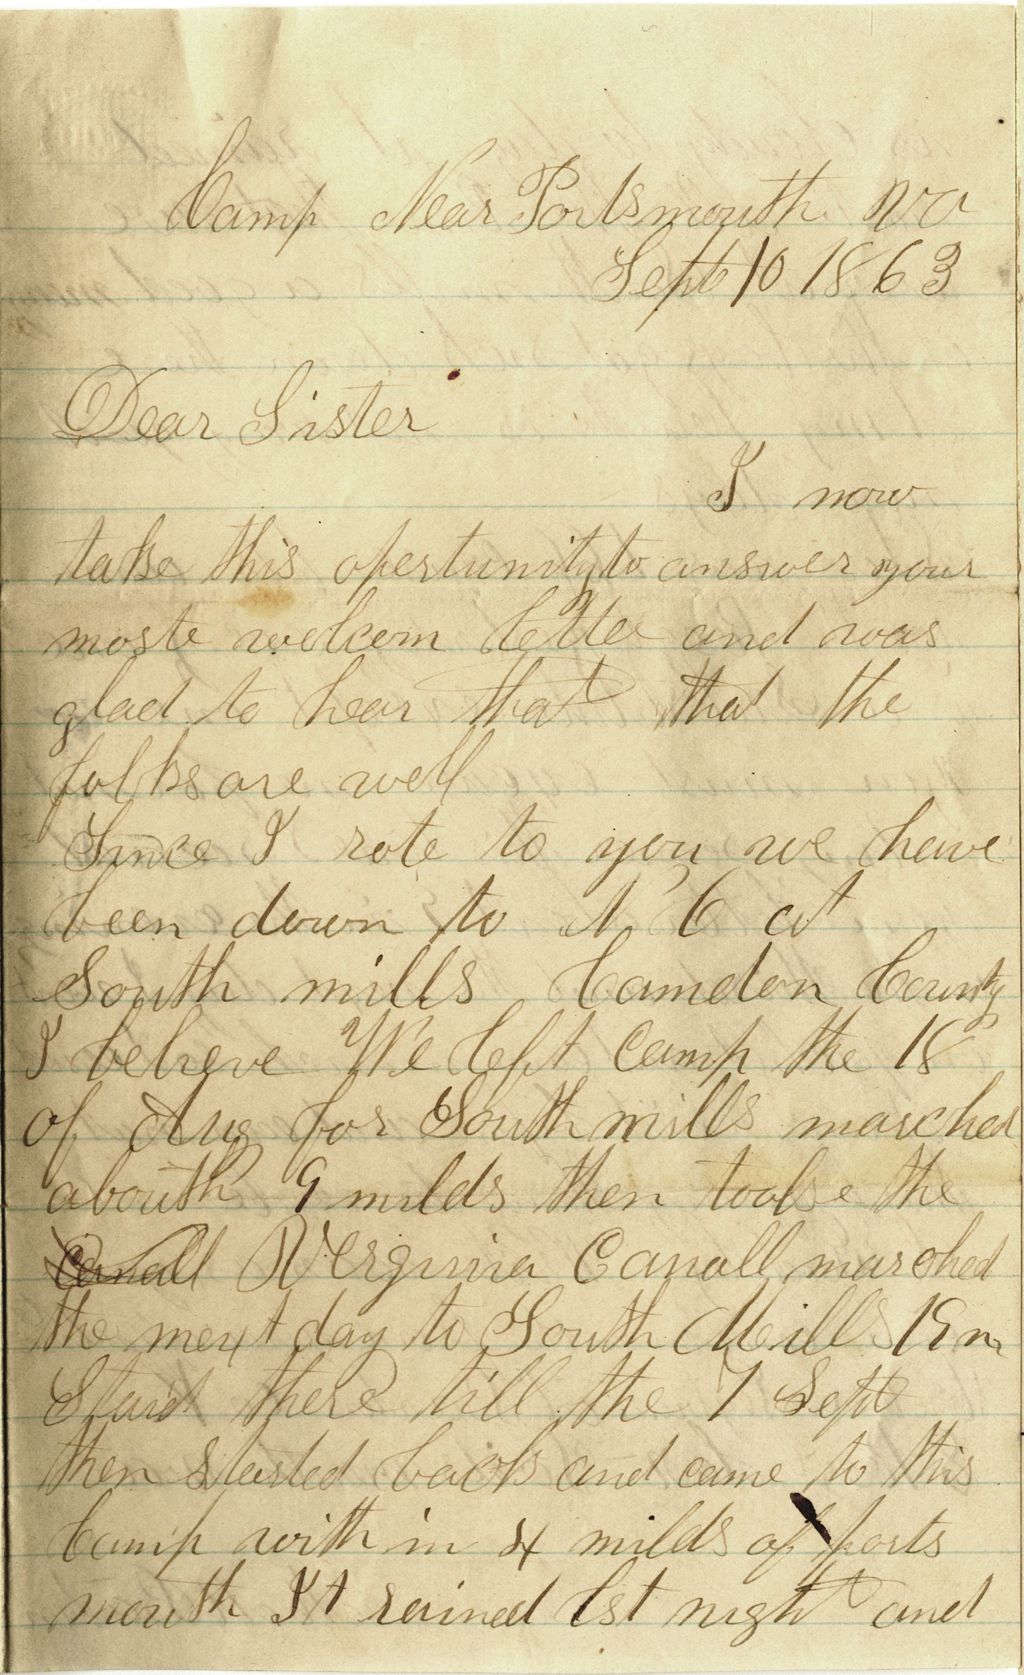 Camp Near Portsmouth Va
Sept 10 1863
Dear Sister
I now
take this opertunity to answer your
moste welcom letter and was
glad to hear that that the
folks are well
Since I rote to you we have
been down to N C at
South mills Camdon County
I believe We left camp the 18
of Aug for South mills marched
abouth 9 milds then tooke the
Canall Verginia Canall marched
the next day to South Mills 19 m
Staid there till the 7 Sept
then started back and came to this
Camp with in 4 milds of ports
mouth It rained lst night and